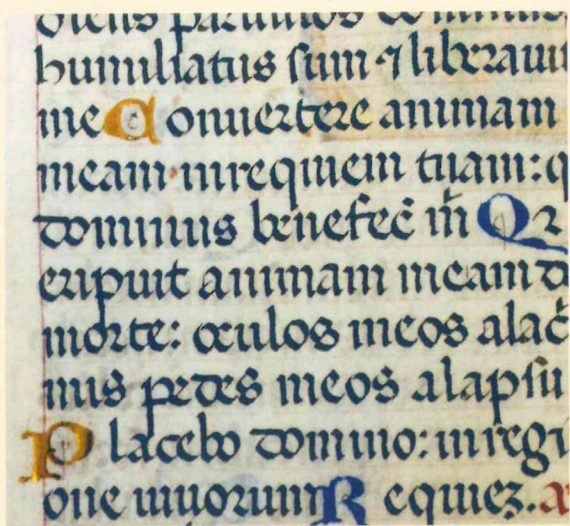 diens paruulos dominus
humiliatus sum ⁊ liberauit
me Conuertere animam
meam in requiem tuam: q
dominus benefec̄ m̄ Qr
eripuit animam meam d
morte: oculos meos alac̄
mis pedes meos alapsu
Placebo domino: in regi
one uiuorum Requiez. a